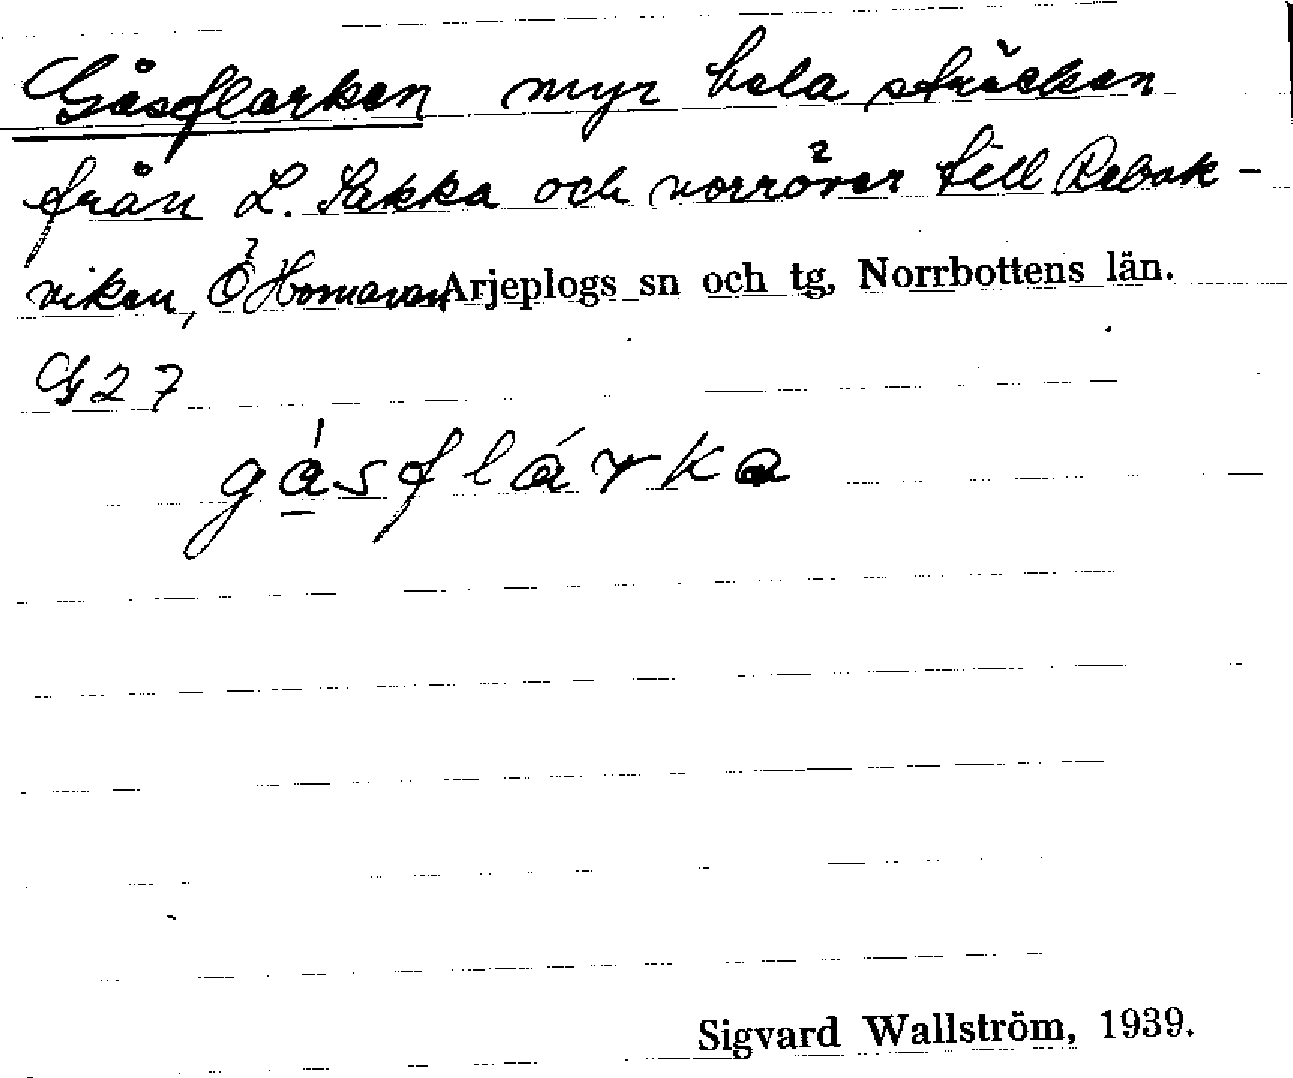 Gåsflarken myr hela sträcken
från L. Sakka och norröver till Rebak-
viken, Ö Hornavan Arjeplogs sn och tg, Norrbottens län.
G 27
gåsflárka
Sigvard Wallström, 1939.